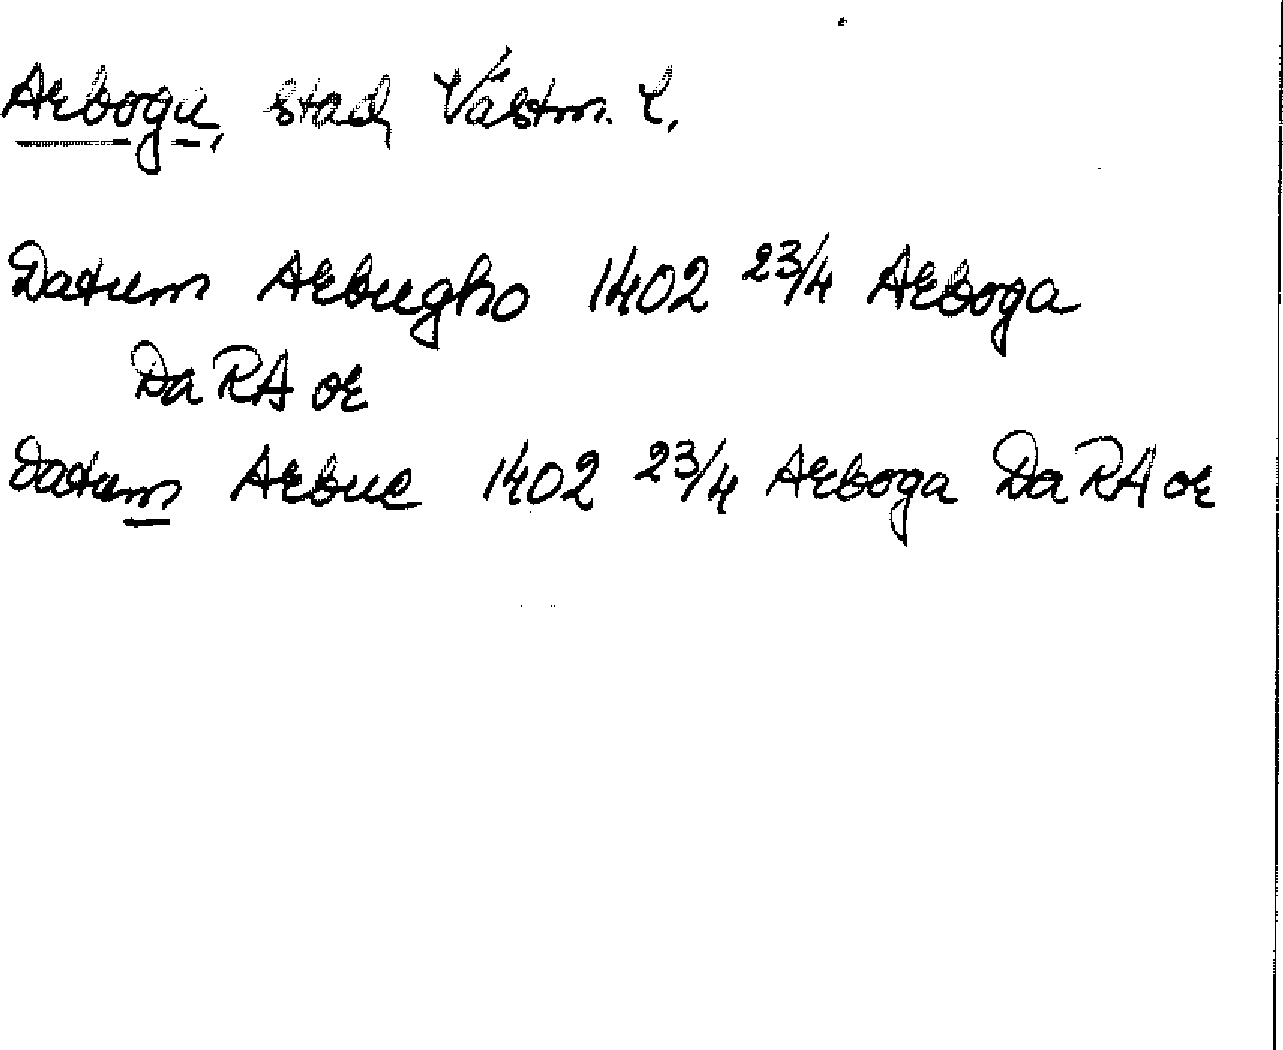 Arboga, stad, Västm. l.
Datum Arbugho 1402 23/4 Arboga
DaRA or
Datum Arbue 1402 23/4 Arboga DaRA or